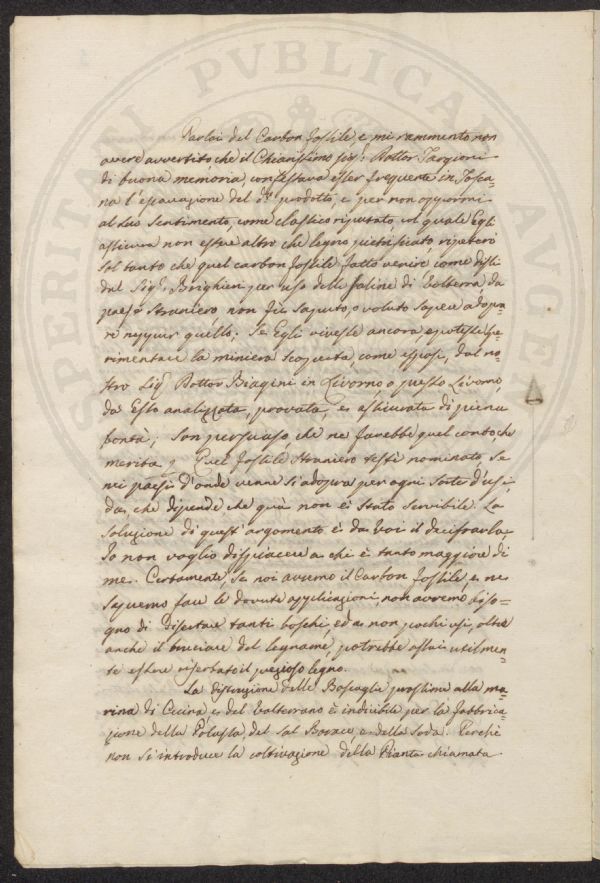 Parlai del Carbon fossile e mi rammento non
avere avvertito che il Chiarissimo Sig.r Dottor Targioni
di buona memoria, confessava esser frequente in Tosca=
na l'escavazione del d.o prodotto, e per non oppormi
al suo sentimento, come classico riputato, col quale Egli
assicura non essere altro che legno pietrificato, ripeterò
sol tanto che quel carbon fossile fatto venire come dissi
dal Sig.r Brighieri per uso delle saline di Volterra, da
paese straniero, non fu saputo, o voluto sapere adopra=
re neppur quello; Se Egli vivesse ancora, e potesse spe=
rimentare la miniera scoperta, come esposi, dal no=
stro Sig.r Dottor Biagini in Livorno o presso Livorno
da Esso analizzata, provata, e assicurata di piena
bontà; son persuaso che ne farebbe quel conto che
merita; Quel fossile straniero testè nominato se
nei paesi d'onde venne si adopra per ogni sorte d'usi,
da che dipende che quà non è stato servibile? La
soluzione di quest'argomento è da voi il decifrarla,
Io non voglio dispiacere a chi è tanto maggiore di
me. Certamente, se noi avremo il Carbon fossile, e ne
sapremo fare le dovute applicazioni, non avremo biso=
gno di disertare tanti boschi, ed a non pochi usi, oltre
anche il bruciare del legname, potrebbe assai utilmen=
te essere riserbato il prezioso legno.
La distruzione delle Boscaglie prossime alla ma=
rina di Cecina, e del Volterrano è indicibile per la fabbrica=
zione della Potassa, del Sal Borace, e della Soda. Perchè
non si introduce la coltivazione della Pianta chiamata
SIERITANI PVBLICAE AVGEN